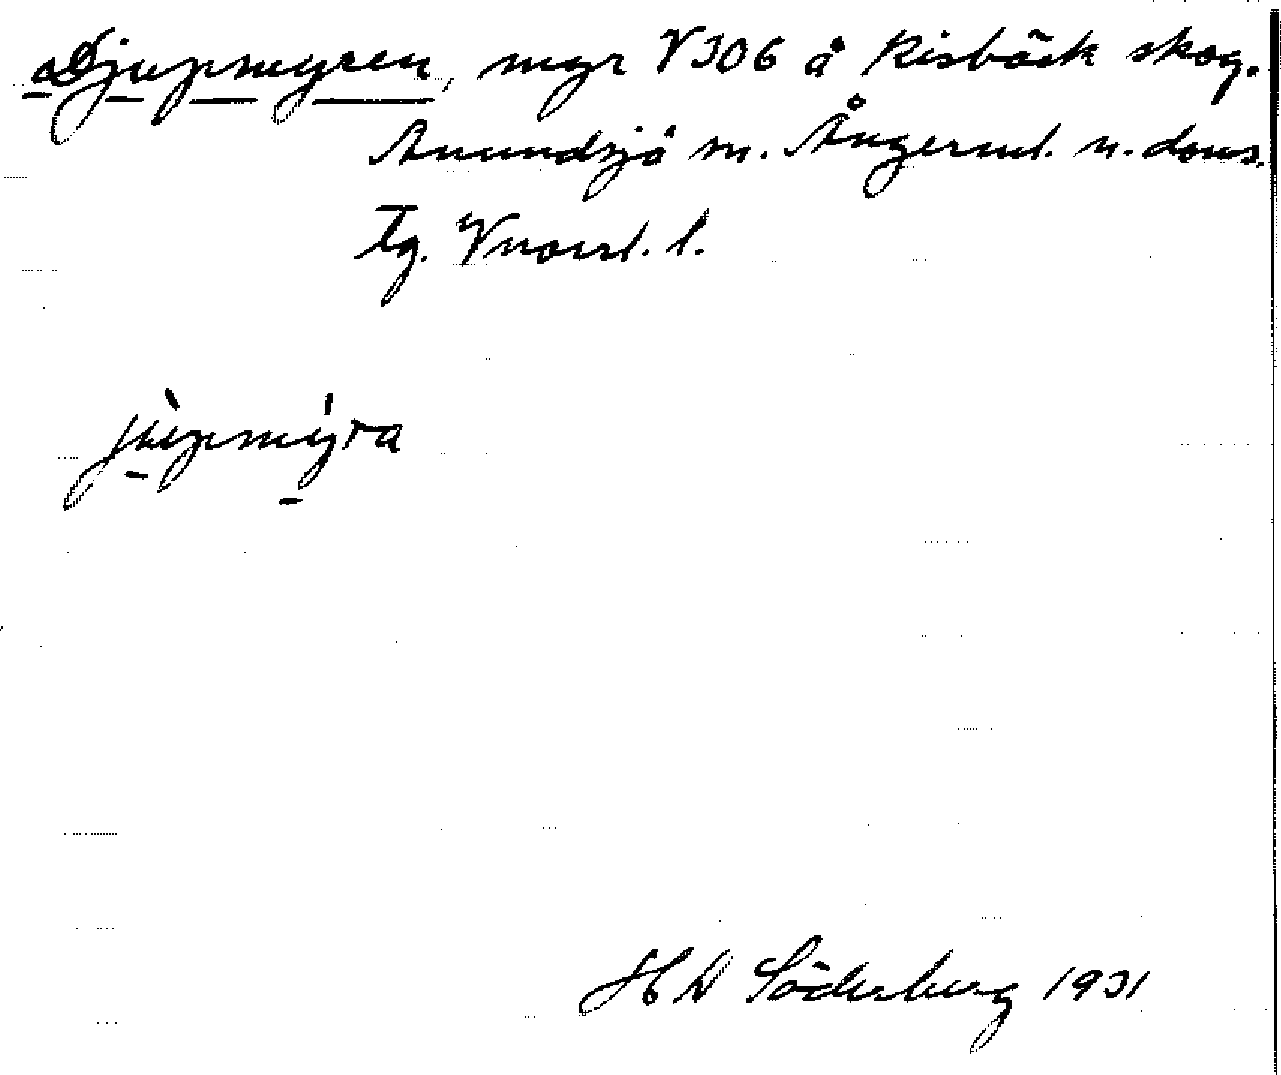 Djupmyren, myr V306 å Risbäck skog.
Anundsjö sn. Ångerml. n. doms.
Tg. Vnorrl. l.
jùpmýra
H D Söderberg 1931